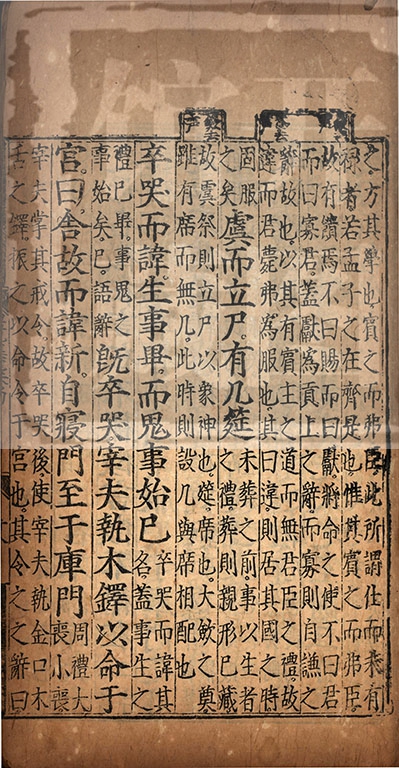 之方其學也賓之而弗臣此所謂仕而未有
祿者若孟子之在齊是也惟其賓之而弗臣
故有饋焉不曰賜而曰獻將命之使不曰君
而曰寡君蓋獻爲貢上之辭而寡則自謙之
辭故也以其有賓主之道而無君臣之禮故
違而君薨弗爲服也其曰違則居其國之時
固服
之矣
虞而立尸有几筵
未葬之前事以生者
之禮葬則親形已藏
故虞祭則立尸以象神也筵席也大斂之奠
雖有席而無几此時則設几與席相配也
卒哭而諱生事畢而鬼事始已
卒哭而諱其
名蓋事生之
禮已畢事鬼之
事始矣已語辭
旣卒哭宰夫執木鐸以命于
宮曰舍故而諱新自寢門至于庫門
周禮大
喪小喪
宰夫掌其戒令故卒哭後使宰夫執金口木
舌之鐸振之以命令于宮也其令之之辭曰